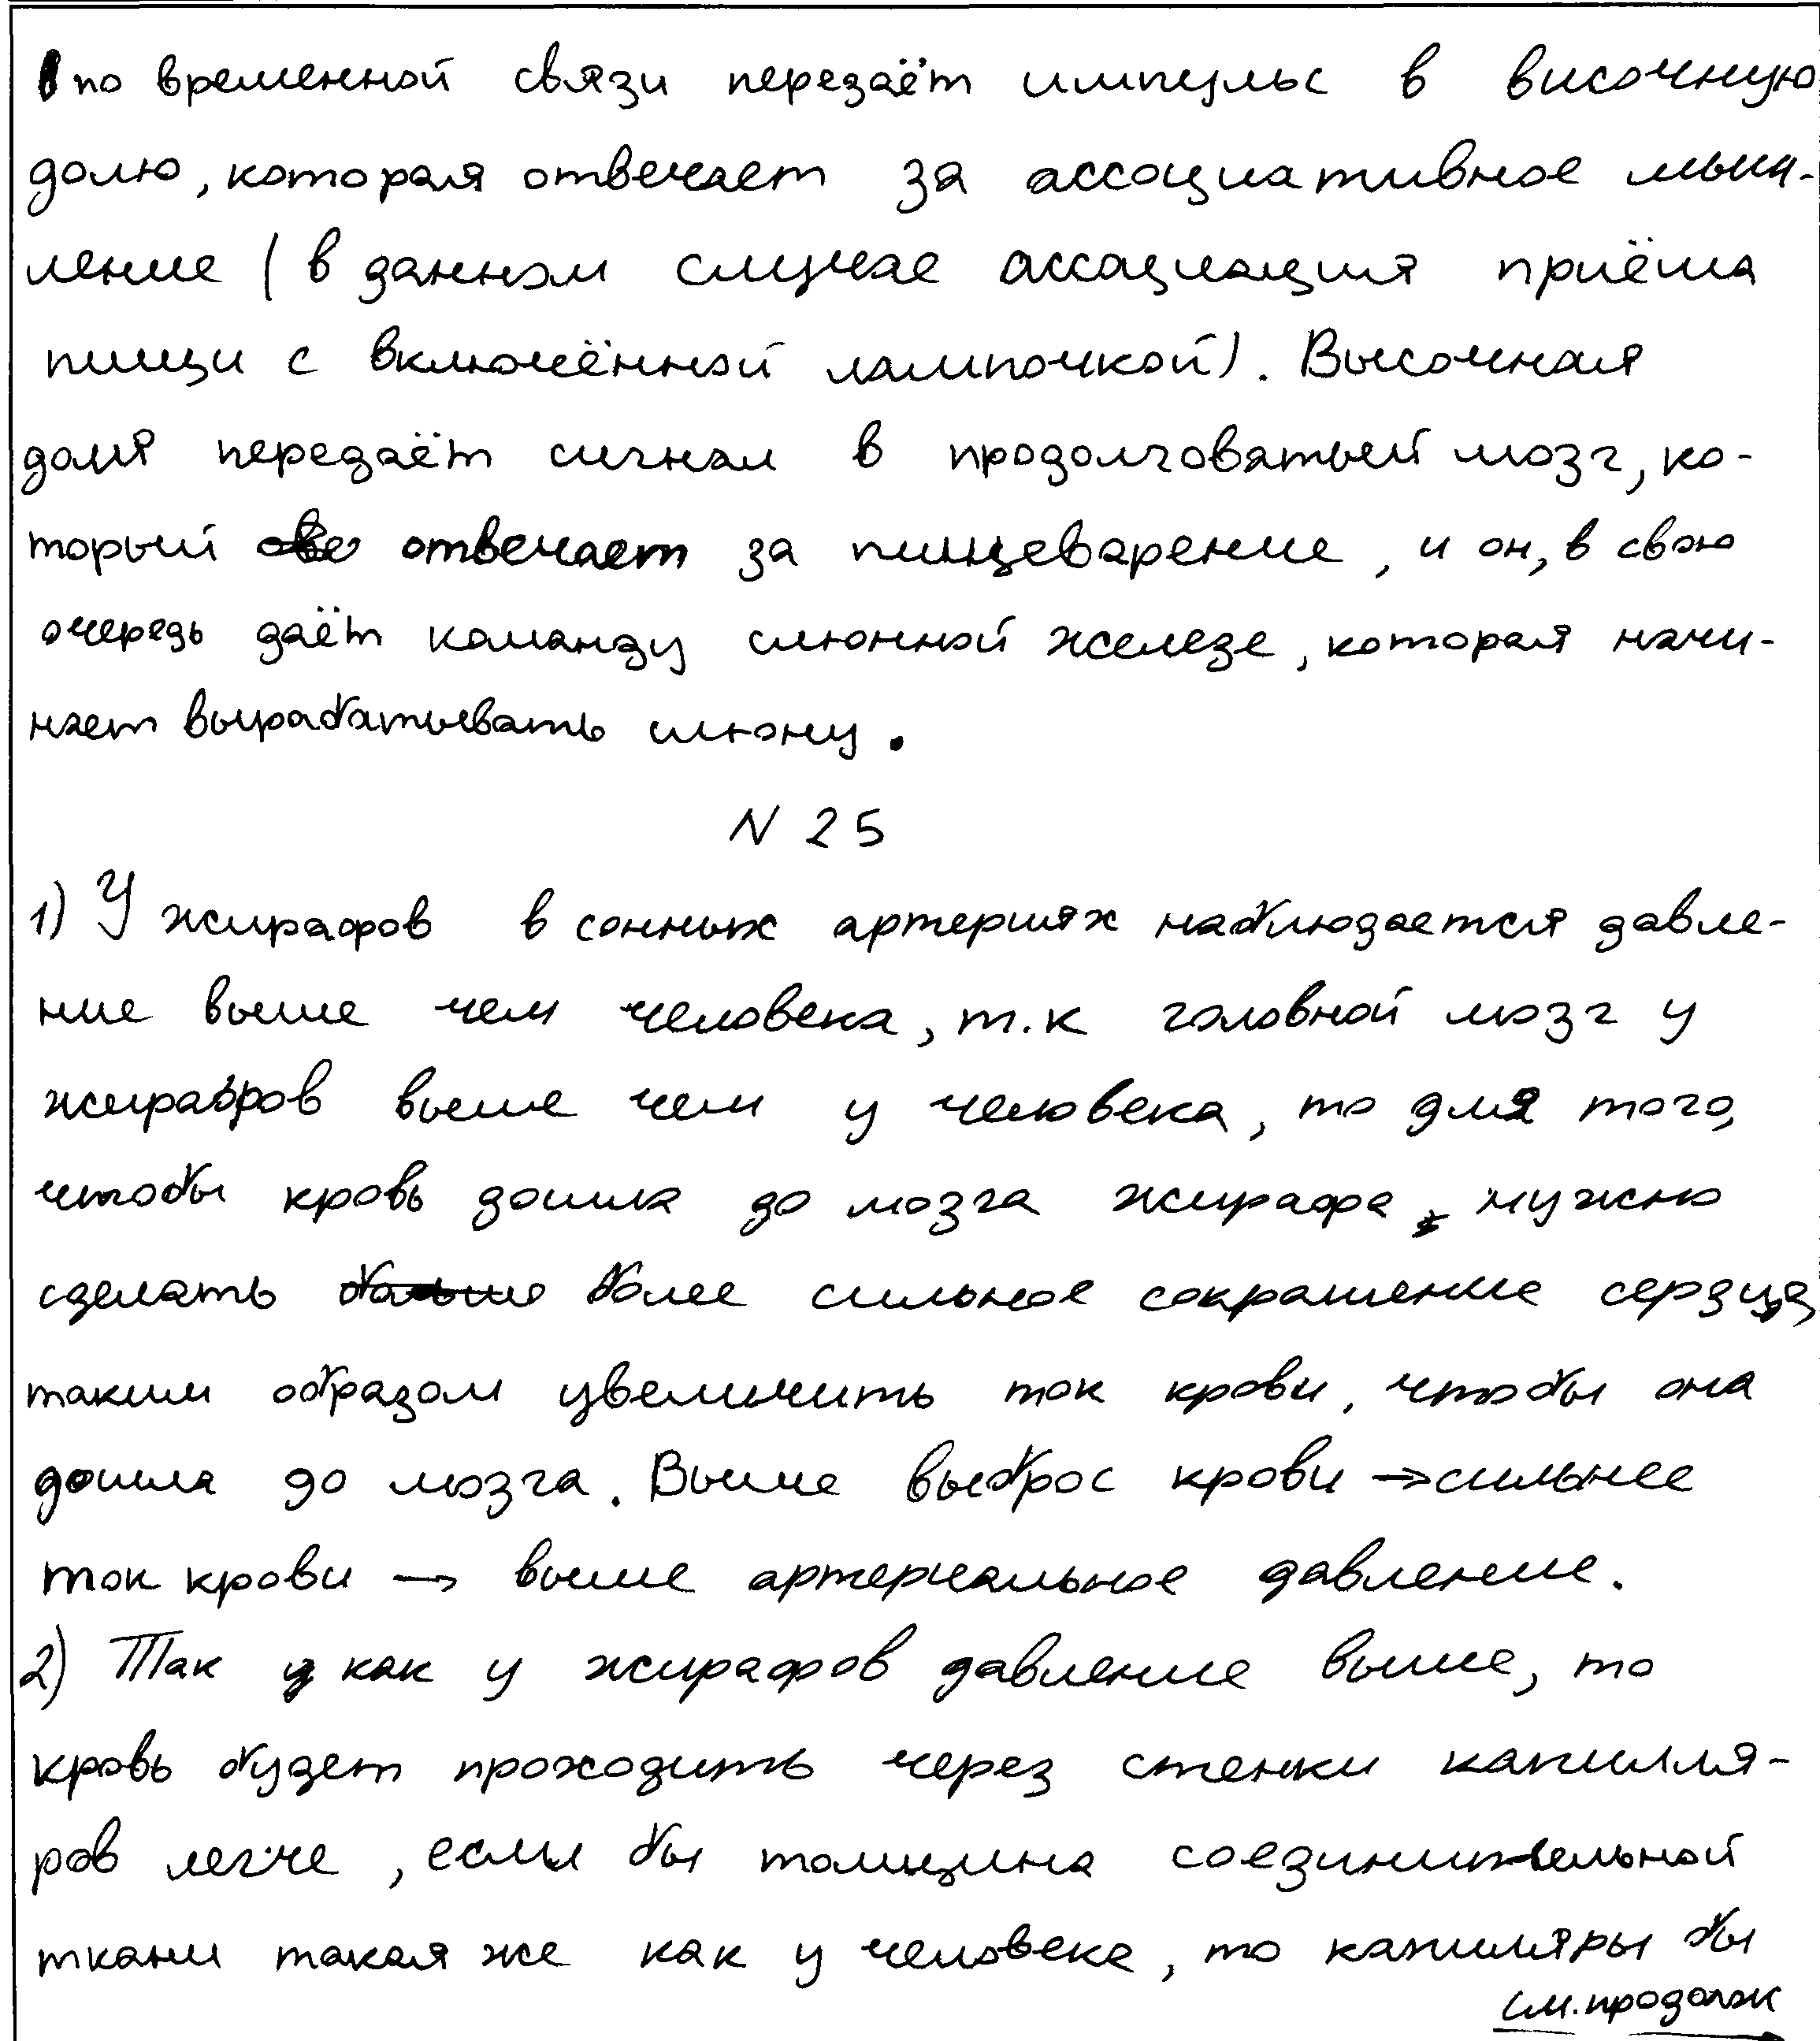 по временной связи передаёт импульс в височную
долю, которая отвечает за ассоциативное мыш-
ление (в данном случае ассоциация приёма
пищи с включённой лампочкой). Височная
доля передаёт сигнал в продолговатый мозг, ко-
торый отвечает за пищеварение, и он, в свою
очередь даёт команду слюнной железе, которая начи-
нает вырабатывать слюну.
N 25
1) У жирафов в сонных артериях наблюдается давле-
ние выше чем человека, т.к головной мозг у
жирафов выше чем у человека, то для того,
чтобы кровь дошла до мозга жирафа, нужно
сделать более сильное сокращение сердца,
таким образом увеличить ток крови, чтобы она
дошла до мозга. Выше выброс крови → сильнее
ток крови → выше артериальное давление.
2) Так как у жирафов давление выше, то
кровь будет проходить через стенки капилля-
ров легче, если бы толщина соединительной
ткани такая же как у человека, то капилляры бы
см. продолж